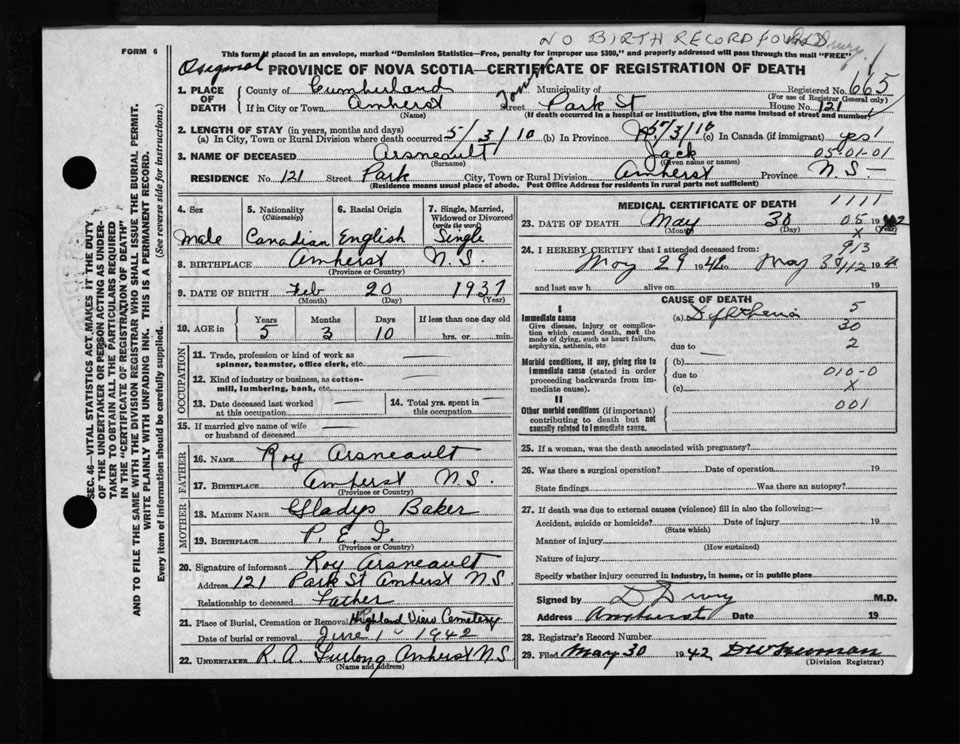 NO BIRTH RECORD FOUND
FORM 6
This form if placed in an envelope, marked "Dominion Statistics—Free, penalty for improper use $300," and properly addressed will pass through the mail "FREE"
Original
PROVINCE OF NOVA SCOTIA—CERTIFICATE OF REGISTRATION OF DEATH
1. PLACE OF DEATH
County of Cumberland Municipality of Registered No. 665
(For use of Registrar General only)
If in City or Town Amherst Street Park St House No. 121
(Name) (If death occurred in a hospital or institution, give the name instead of street and number)
2. LENGTH OF STAY (in years, months and days)
(a) In City, Town or Rural Division where death occurred 5/3/10 (b) In Province 5/3/10 (c) In Canada (if immigrant) yes
3. NAME OF DECEASED Arsneault Jack 05-01-01
(Surname) (Given name or names)
RESIDENCE No. 121 Street Park City, Town or Rural Division Amherst Province N.S—
(Residence means usual place of abode. Post Office Address for residents in rural parts not sufficient)
SEC. 46—VITAL STATISTICS ACT MAKES IT THE DUTY
OF THE UNDERTAKER OR PERSON ACTING AS UNDER-
TAKER TO OBTAIN ALL THE PARTICULARS REQUIRED
IN THE "CERTIFICATE OF REGISTRATION OF DEATH"
AND TO FILE THE SAME WITH THE DIVISION REGISTRAR WHO SHALL ISSUE THE BURIAL PERMIT.
WRITE PLAINLY WITH UNFADING INK. THIS IS A PERMANENT RECORD.
Every item of information should be carefully supplied. (See reverse side for instructions.)
4. Sex
Male
5. Nationality
(Citizenship)
Canadian
6. Racial Origin
English
7. Single, Married, Widowed or Divorced
(write the word)
Single
8. BIRTHPLACE Amherst N.S.
(Province or Country)
9. DATE OF BIRTH Feb 20 1937
(Month) (Day) (Year)
10. AGE in
Years Months Days If less than one day old
5 3 10 hrs. or min.
OCCUPATION
11. Trade, profession or kind of work as
spinner, teamster, office clerk, etc.
12. Kind of industry or business, as cotton-
mill, lumbering, bank, etc.
13. Date deceased last worked
at this occupation
14. Total yrs. spent in
this occupation
15. If married give name of wife
or husband of deceased
FATHER
16. NAME Roy Arsneault
17. BIRTHPLACE Amherst N.S.
(Province or Country)
MOTHER
18. MAIDEN NAME Gladys Baker
19. BIRTHPLACE P. E. I.
(Province or Country)
20. Signature of informant Roy Arsneault
Address 121 Park St Amherst N.S
Relationship to deceased Father
21. Place of Burial, Cremation or Removal Highland View Cemetery
Date of burial or removal June 1 1942
22. UNDERTAKER R. A. Furlong Amherst N.S
(Name and address)
MEDICAL CERTIFICATE OF DEATH 1111
23. DATE OF DEATH May 30 05 19
(Month) (Day) (Year)
X
24. I HEREBY CERTIFY that I attended deceased from: 913
May 29 1942 to May
and last saw h alive on 19
CAUSE OF DEATH
Immediate cause
Give disease, injury or complica-
tion which caused death, not the
mode of dying, such as heart failure,
asphyxia, asthenia, etc.
(a) 5
30
due to 2
Morbid conditions, if any, giving rise to
immediate cause (stated in order
proceeding backwards from im-
mediate cause).
(b)
due to 010-0
(c) X
II
Other morbid conditions (if important)
contributing to death but not
causally related to immediate cause.
001
25. If a woman, was the death associated with pregnancy?
26. Was there a surgical operation? Date of operation 19
State findings Was there an autopsy?
27. If death was due to external causes (violence) fill in also the following:—
Accident, suicide or homicide? Date of injury 19
(State which)
Manner of injury
(How sustained)
Nature of injury
Specify whether injury occurred in industry, in home, or in public place
Signed by D Drury M.D.
Address Amherst Date 19
28. Registrar's Record Number
29. Filed May 30 1942
(Division Registrar)